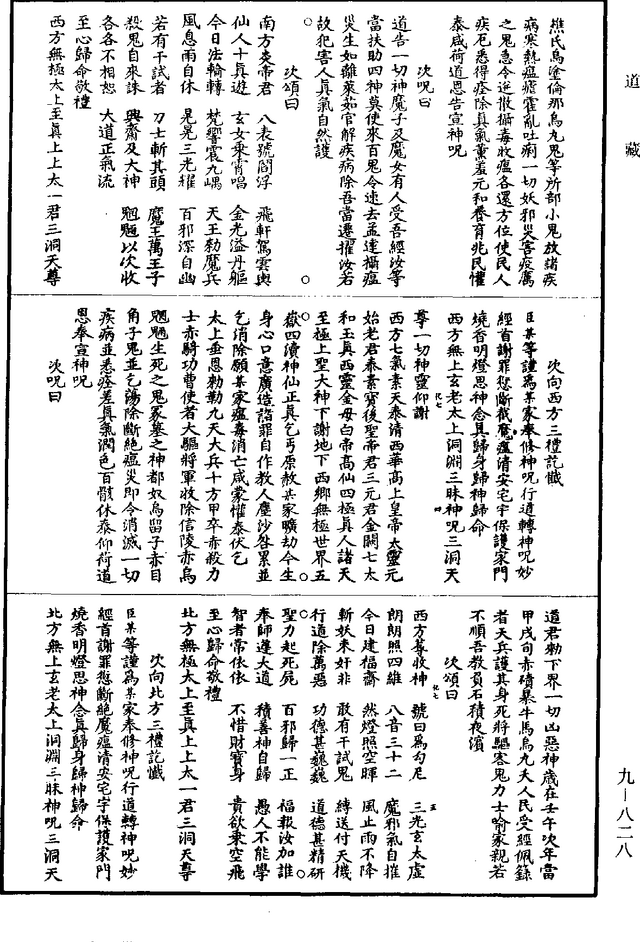 道藏
樵氏烏塗倫那烏九鬼等所部小鬼放諸疾
病寒熱瘟瘧霍亂吐痢一切妖邪災害疫厲
之鬼急令逆散攝毒收瘟各還方位使民人
疾厄悉得痊除真氣薰羞元和養育兆民懽
泰咸荷道恩告宣神呪
次呪曰
道告一切神魔子及魔女有人受吾經汝等
當扶助四神莫使來百鬼令速去孟達攝瘟
災生如雛萊茹官解疾病除吾當遷擢汝若
故犯害人真氣自然護
次頌曰
南方炎帝君　八表號閻浮　飛軒駕雲輿
仙人十真遊　玄女乘霄唱　金光溢丹軀
今日法輪轉　梵響震九嵎　天王勑魔兵
風息雨自休　晃晃三光耀　百邪深自幽
若有干試者　刀士斬其頭　魔王萬王子
殺鬼自來誅　興齋及大神　魍魎以次收
各各不相恕　大道正氣流
至心歸命敬禮
西方無極太上至真上上太一君三洞天尊
次向西方三禮訖懺
臣某等謹為某家奉修神呪行道轉神呪妙
經首謝罪愆斷截魔瘟清安宅宇保護家門
燒香明燈思神念真歸身歸神歸命
西方無上玄老太上洞淵三昧神呪三洞天
尊一切神靈仰謝
西方七氣素天泰清西華高上皇帝太靈元
始老君泰素寶後聖帝君三元君金闕七太
和玉真西靈金母白帝高仙四極真人諸天
至極上聖大神下謝地下西鄉無極世界五
嶽四瀆神仙正真乞丐原赦某家曠劫今生
身心口意廣造諸罪自作教人塵沙咎累並
乞消除願某家瘟毒消亡咸蒙懽泰伏乞
太上垂恩勑勒九天大兵十方甲卒赤殺力
士赤騎功曹使者大驅將軍收除信陵赤烏
魍魎生死之鬼冢墓之神都奴烏留子赤目
角子鬼並乞蕩除斷絕瘟災即令消滅一切
疾病並悉痊差真氣潤色百骸休泰仰荷道
恩奉宣神呪
次呪曰
道君勑下界一切凶惡神歲在壬午次年當
甲戌旬赤磧暴牛馬烏九夫人民受經佩籙
者天兵護其身死將驅客鬼力士喻家親若
不順吾教負石積夜濱
次頌曰
西方蓐收神　號曰為勾尼　三光玄太虛
朗朗照四維　八音三十二　魔邪氣自摧
今日建福齋　然燈照空暉　風止雨不降
斬妖來奸非　敢有干試鬼　縛送付天機
行道除萬惡　功德甚巍巍　道德甚精研
聖力起死屍　百邪歸一正　福報汝加誰
奉師達大道　積善神自歸　愚人不能學
智者常依依　不惜財寶身　貴欲乘空飛
至心歸命敬禮
北方無極太上至真上上太一君三洞天尊
次向北方三禮訖懺
臣某等謹為某家奉修神呪行道轉神呪妙
經首謝罪愆斷絕魔瘟清安宅宇保護家門
燒香明燈思神念真歸身歸神歸命
北方無上玄老太上洞淵三昧神呪三洞天
九—八二八